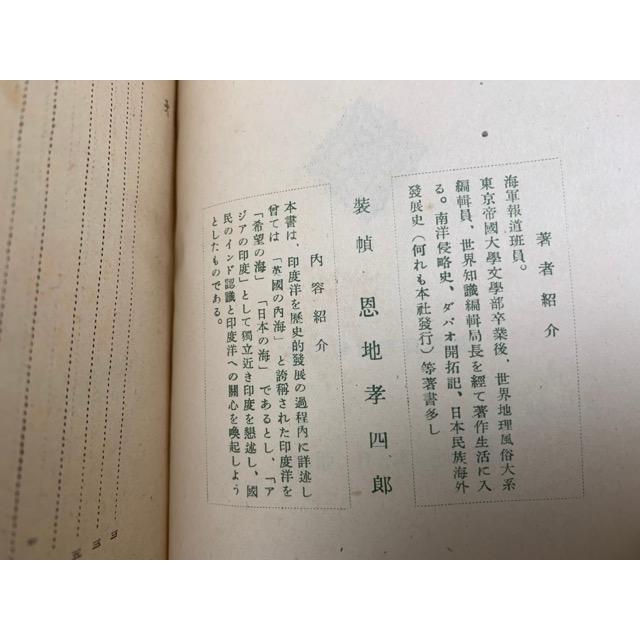 著者紹介
海軍報道班員。
東京帝國大學文學部卒業後、世界地理風俗大系
編輯員、世界知識編輯局長を經て著作生活に入
る。南洋侵略史、ダバオ開拓記、日本民族海外
發展史（何れも本社發行）等著書多し
裝幀 恩地孝四郎
内容紹介
本書は、印度洋を歷史的發展の過程内に詳述し
曾ては「英國の内海」と誇稱された印度洋を
「希望の海」「日本の海」であるとし、「ア
ジアの印度」として獨立近き印度を懇述し、國
民のインド認識と印度洋への關心を喚起しよう
としたものである。